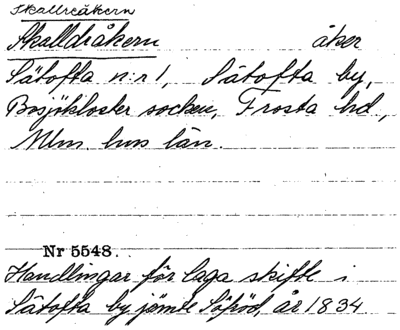 Skallreåkern
Skalldråkern åker
Sätofta n:r 1, Sätofta by,
Bosjökloster socken, Frosta hd,
Mlm. hus län.
Nr 5548.
Handlingar för laga skifte i
Sätofta by jämte Söfröd, år 1834